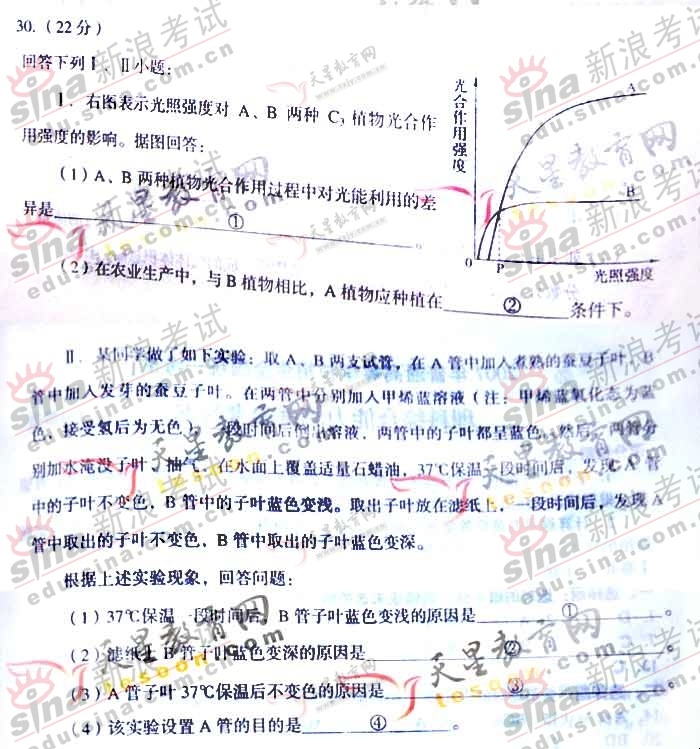 30.（22分）
回答下列Ⅰ、Ⅱ小题：
Ⅰ．右图表示光照强度对 A、B 两种 C₃ 植物光合作
用强度的影响。据图回答：
（1）A、B 两种植物光合作用过程中对光能利用的差
异是 ① 。
光合作用强度
A
B
0
P
光照强度
（2）在农业生产中，与 B 植物相比，A 植物应种植在 ② 条件下。
Ⅱ．某同学做了如下实验：取 A、B 两支试管，在 A 管中加入煮熟的蚕豆子叶，B
管中加入发芽的蚕豆子叶。在两管中分别加入甲烯蓝溶液（注：甲烯蓝氧化态为蓝
色，接受氢后为无色）。一段时间后倒出溶液，两管中的子叶都呈蓝色。然后，两管分
别加水淹没子叶，抽气，在水面上覆盖适量石蜡油，37℃保温一段时间后，发现 A 管
中的子叶不变色，B 管中的子叶蓝色变浅。取出子叶放在滤纸上，一段时间后，发现 A
管中取出的子叶不变色，B 管中取出的子叶蓝色变深。
根据上述实验现象，回答问题：
（1）37℃保温一段时间后，B 管子叶蓝色变浅的原因是 ① 。
（2）滤纸上 B 管子叶蓝色变深的原因是 ② 。
（3）A 管子叶 37℃保温后不变色的原因是 ③ 。
（4）该实验设置 A 管的目的是 ④ 。
sina 新浪考试
edu.sina.com.cn
天星教育网
tesoon.com